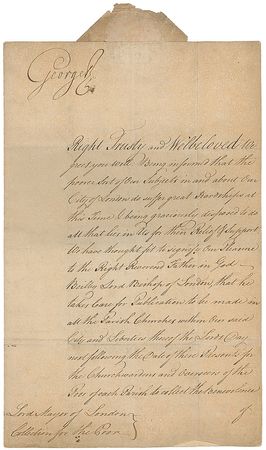 George R
Right Trusty and Welbeloved We
greet you well. Being informed that the
poorer Sort of Our Subjects in and about Our
City of London do suffer great Hardships at
this Time & being graciously disposed to do
all that lies in Us for their Relief & Support
We have thought fit to signify Our Pleasure
to the Right Reverend Father in God
Lord Bishop of London that he
takes Care for Publication to be made in
all the Parish Churches within Our said
City and Liberties thereof the Lord's Day
next following the Date of these Presents for
the Churchwardens and Overseers of the
Poor of each Parish to collect the benevolence
of
Lord Mayor of London
Collection for the Poor